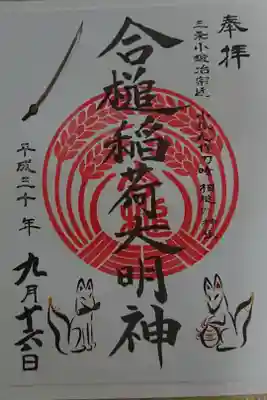 奉拝
三条小鍛冶宗近
合槌稲荷大明神
平成三十年
九月十六日